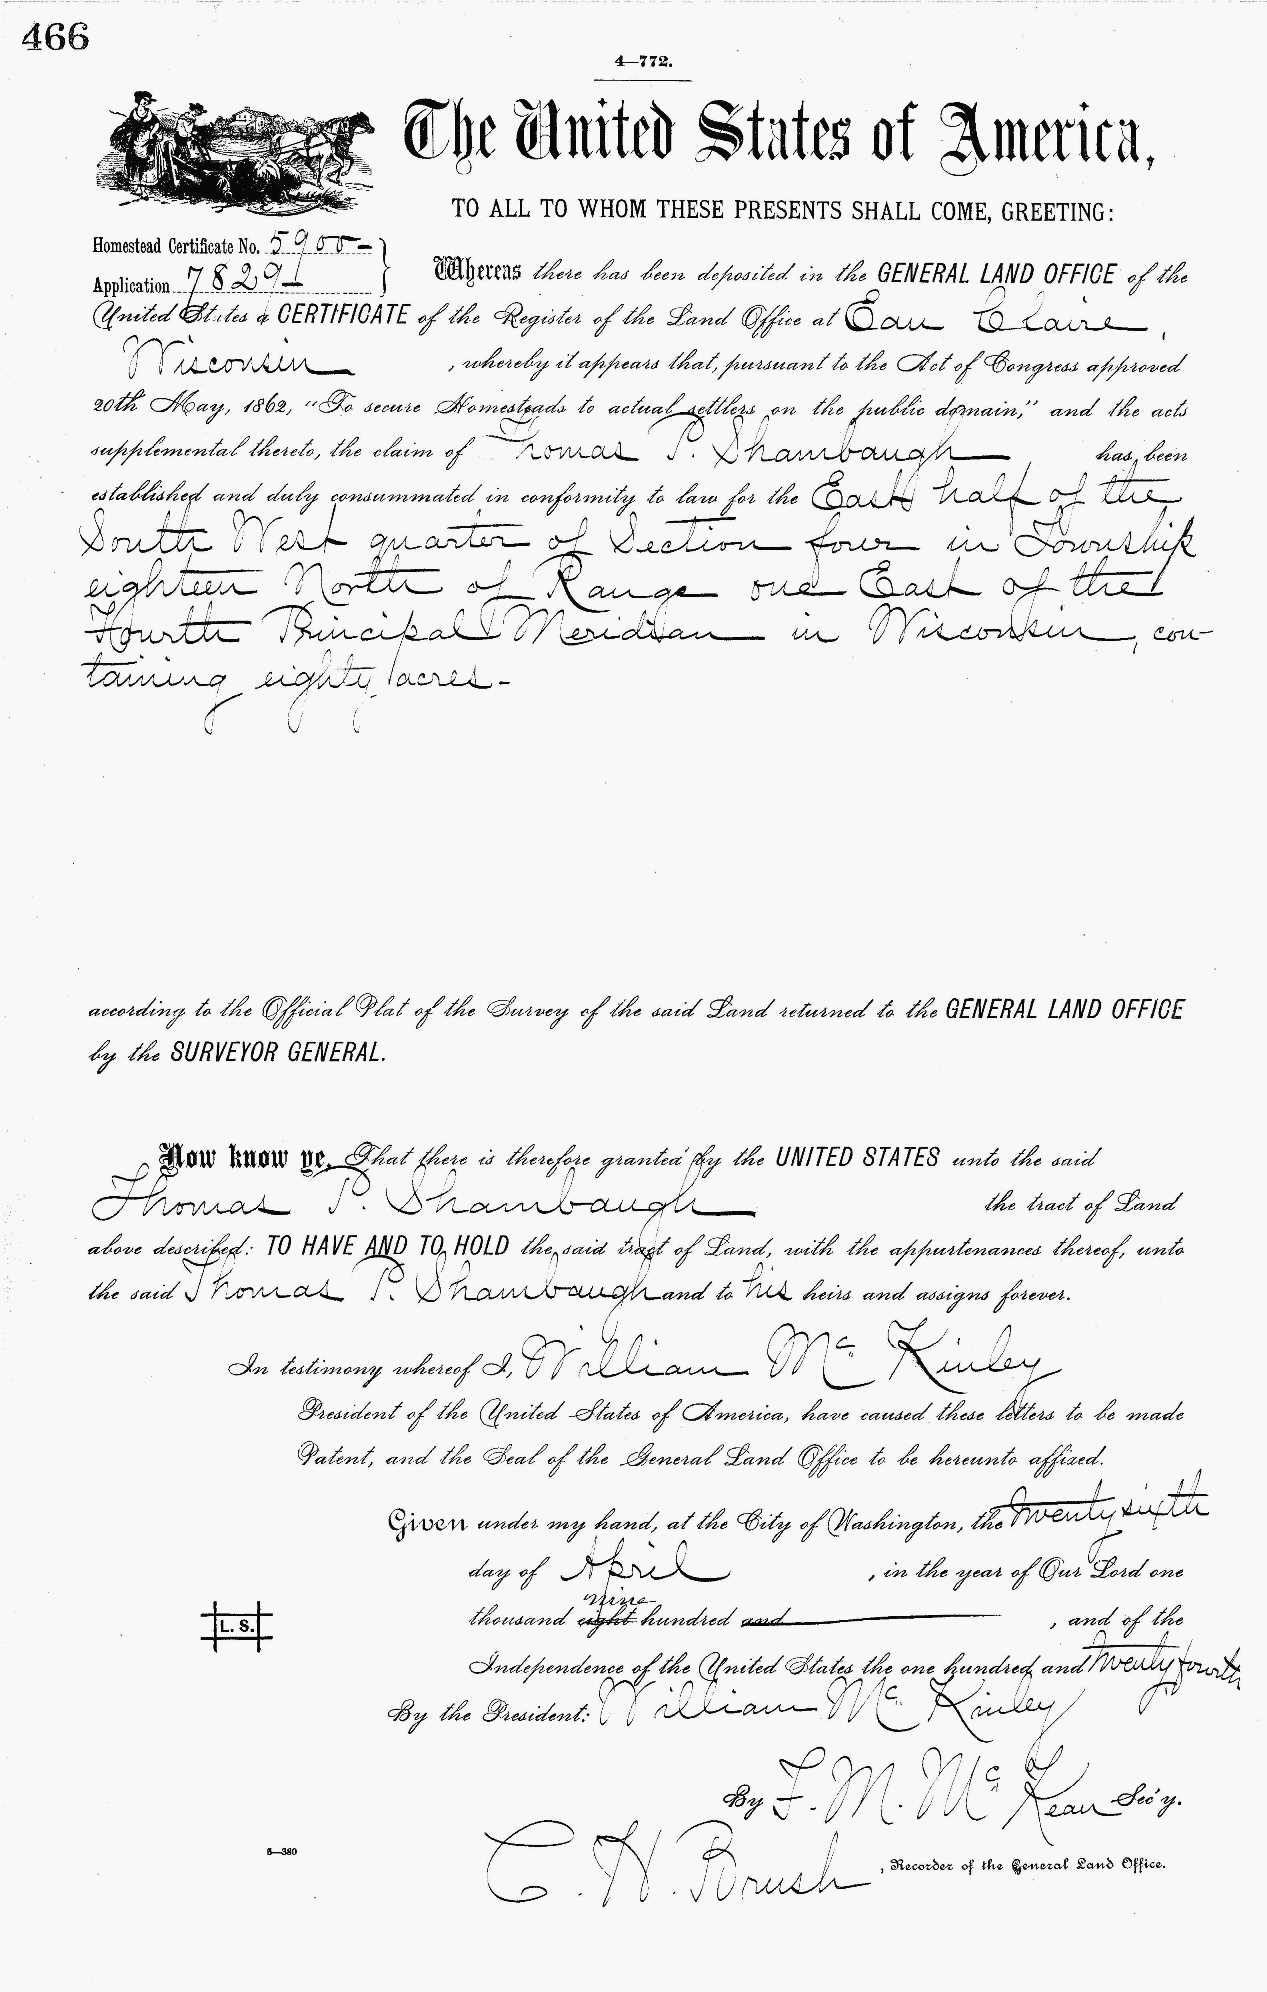 466
4—772.
The United States of America,
TO ALL TO WHOM THESE PRESENTS SHALL COME, GREETING:
Homestead Certificate No. 5900—
Application 7829—
Whereas there has been deposited in the GENERAL LAND OFFICE of the
United States a CERTIFICATE of the Register of the Land Office at Eau Claire,
Wisconsin, whereby it appears that, pursuant to the Act of Congress approved
20th May, 1862, “To secure Homesteads to actual settlers on the public domain,” and the acts
supplemental thereto, the claim of Thomas P. Shambaugh has been
established and duly consummated in conformity to law for the East half of the
South West quarter of Section four in Township
eighteen North of Range one East of the
Fourth Principal Meridian in Wisconsin, con-
taining eighty acres-
according to the Official Plat of the Survey of the said Land returned to the GENERAL LAND OFFICE
by the SURVEYOR GENERAL.
Now know ye, That there is therefore granted by the UNITED STATES unto the said
Thomas P. Shambaugh the tract of Land
above described: TO HAVE AND TO HOLD the said tract of Land, with the appurtenances thereof, unto
the said Thomas P. Shambaugh and to his heirs and assigns forever.
In testimony whereof I, William McKinley
President of the United States of America, have caused these letters to be made
Patent, and the Seal of the General Land Office to be hereunto affixed.
Given under my hand, at the City of Washington, the twenty sixth
day of April, in the year of Our Lord one
nine
thousand eight hundred and, and of the
Independence of the United States the one hundred and twenty fourth
L. S.
By the President: William McKinley
By F. M. McKean Sec'y.
C. H. Brush, Recorder of the General Land Office.
6—380